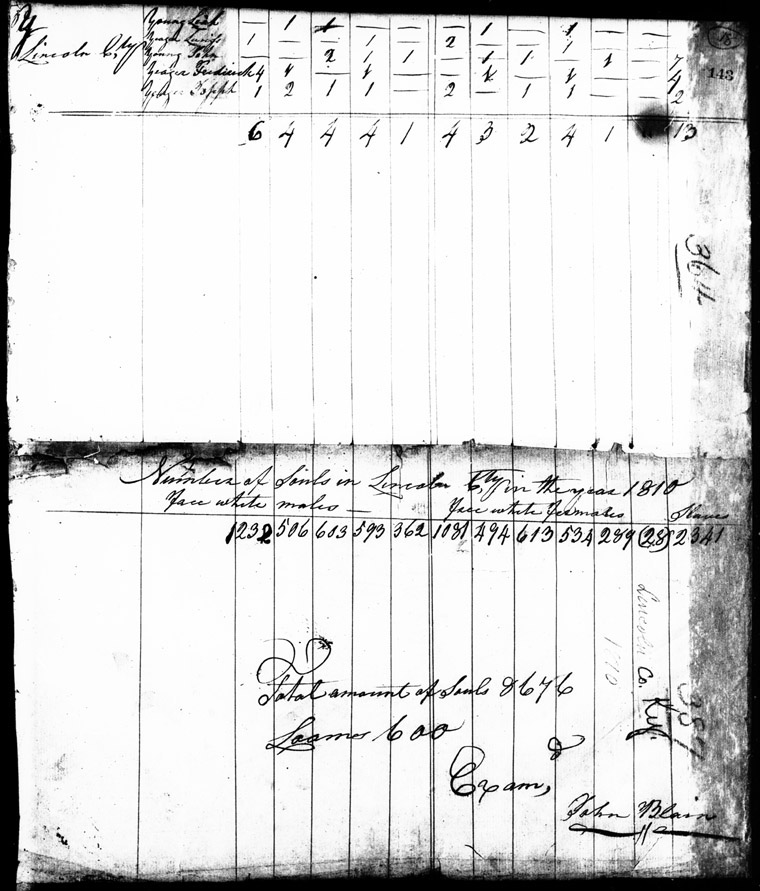 Y
Young Leah — 1 1 — — — 1 — 1 — —
Yeager Lewis 1 — — 1 — 2 — — 1 — —
Lincoln Cty Young John — — 2 1 1 — 1 1 — 1 — 7
Yeager Frederick 4 1 — 1 — — 1 — 1 — — 4
Yeager Joseph 1 2 1 1 — 2 — 1 1 — — 2
6 4 4 4 1 4 3 2 4 1 13
143
364
Number of Souls in Lincoln Cty in the year 1810
Free white males — Free white females Slaves
1232 506 603 593 362 1081 494 613 534 289 (28) 2341
Total amount of Souls 8676
Looms 600
Exam,
John Blain
Lincoln Co. Ky.
1810
387